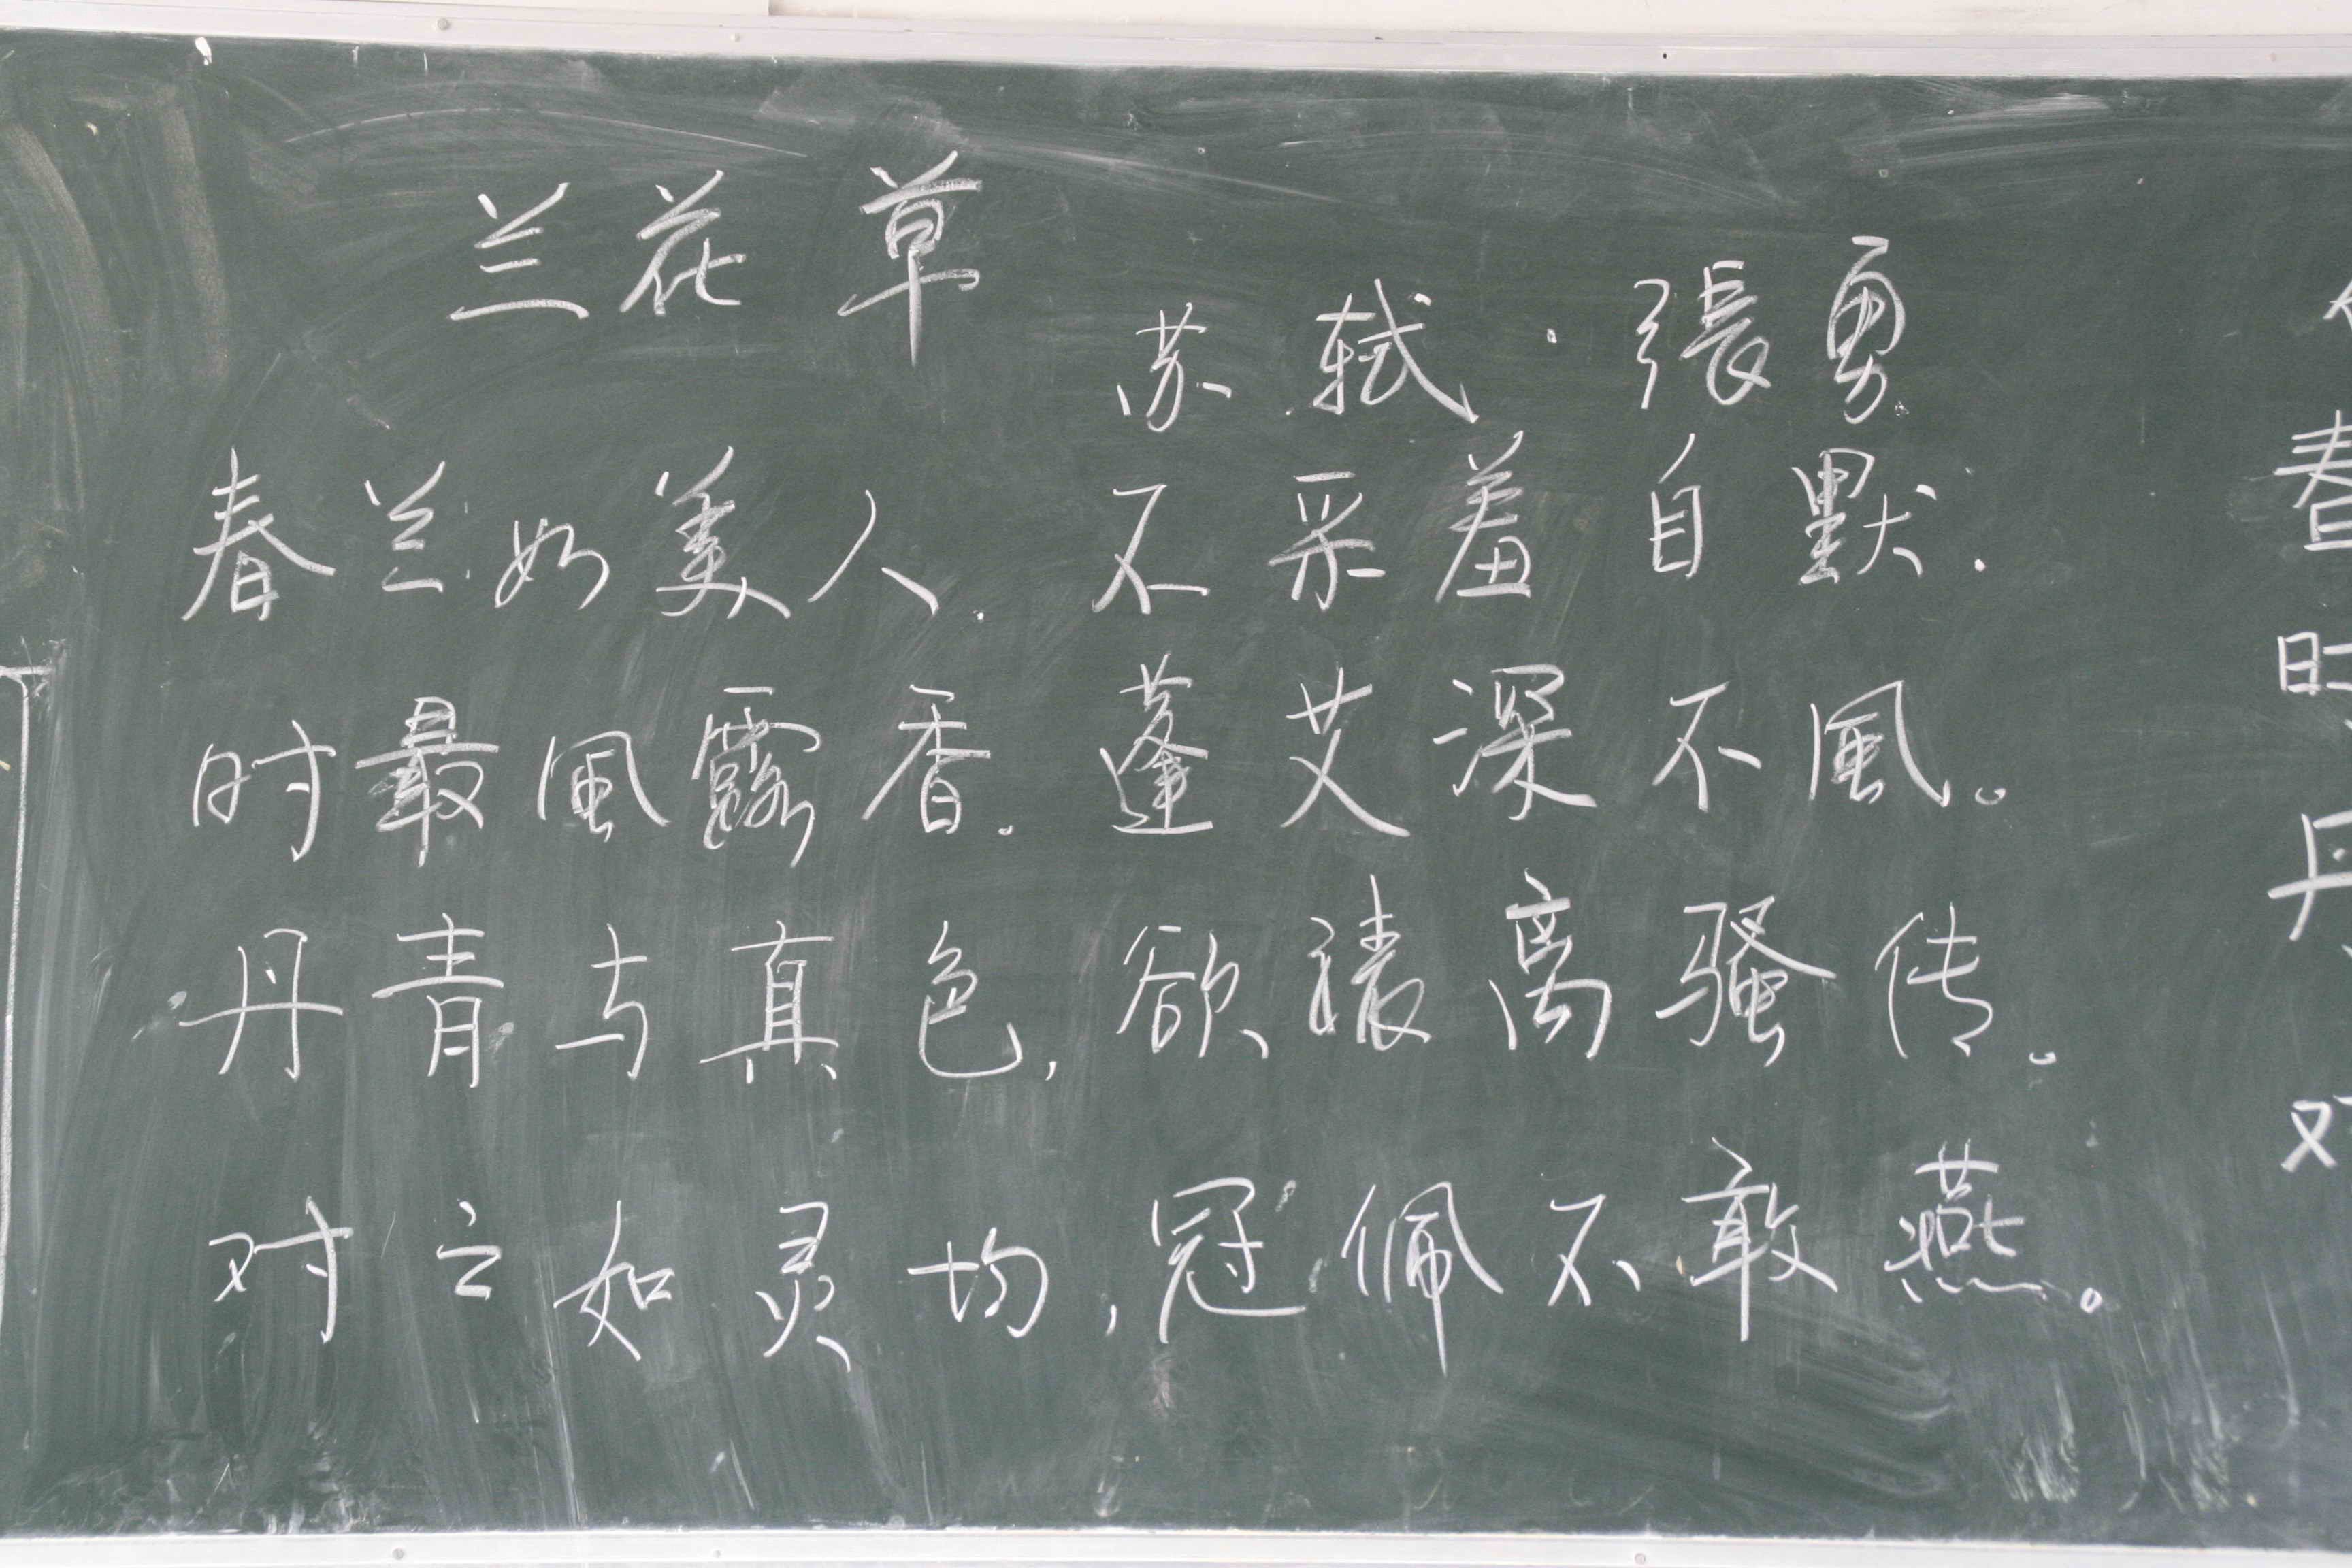 兰花草
苏轼·張勇
春兰如美人.不采羞自默.
时最風露香.蓬艾深不風。
丹青与真色,欲禳离骚传。
对之如灵均,冠佩不敢燕。
春
时
丹
对